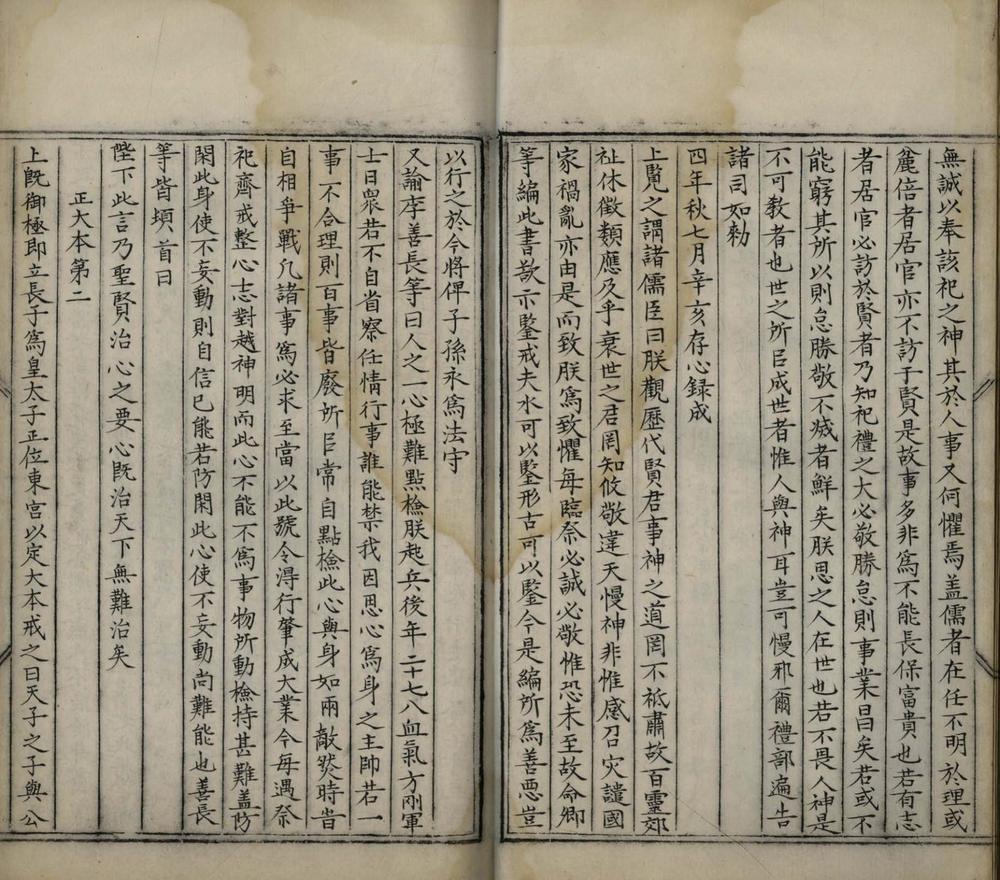 無誠以奉該祀之神其於人事又何懼焉盖儒者在任不明於理或
麄倍者居官亦不訪于賢是故事多非爲不能長保富貴也若有志
者居官必訪於賢者乃知祀禮之大必敬勝怠則事業昌矣若或不
能窮其所以則怠勝敬不滅者鮮矣朕思之人在世也若不畏人神是
不可教者也世之所㠯成世者惟人與神耳豈可慢邪爾禮部遍告
諸司如勑
四年秋七月辛亥存心録成
上覧之謂諸儒臣曰朕觀歷代賢君事神之道罔不祗肅故百靈郊
祉休徵類應及乎衰世之君罔知攸敬違天慢神非惟感召灾譴國
家禍亂亦由是而致朕爲致懼每臨祭必誠必敬惟恐未至故命卿
等編此書欲示鑒戒夫水可以鑒形古可以鑒今是編所爲善惡豈
以行之於今將俾子孫永爲法守
又諭李善長等曰人之一心極難點檢朕起兵後年二十七八血氣方剛軍
士日衆若不自省察任情行事誰能禁我因思心爲身之主帥若一
事不合理則百事皆廢所㠯常自點檢此心與身如兩敵然時皆
自相爭戰凡諸事爲必求至當以此號令淂行肇成大業今每遇祭
祀齊戒整心志對越神明而此心不能不爲事物所動檢持甚難盖防
閑此身使不妄動則自信已能若防閑此心使不妄動尚難能也善長
等皆頓首曰
陛下此言乃聖賢治心之要心旣治天下無難治矣
正大本第二
上旣御極即立長子爲皇太子正位東宮以定大本戒之曰天子之子與公